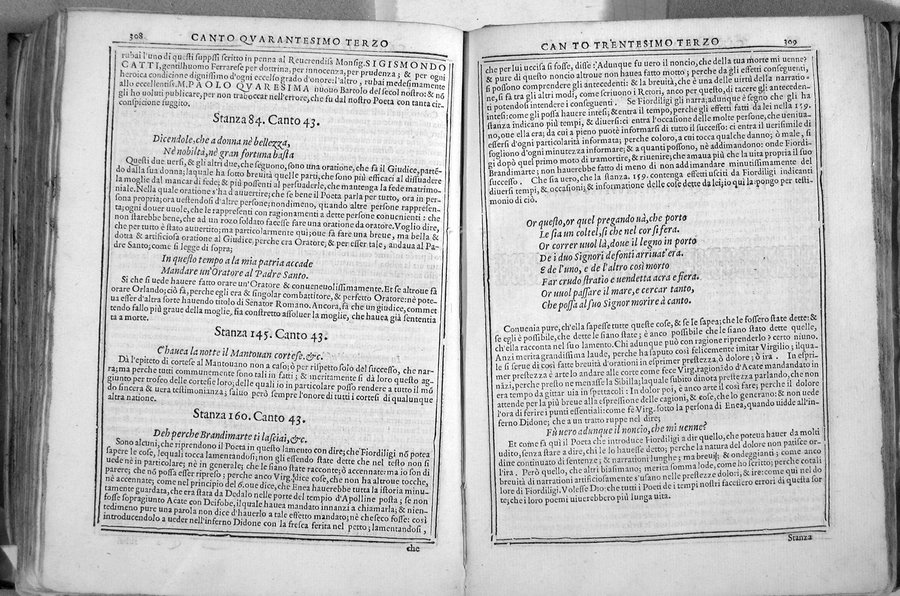 308 CANTO QVARANTESIMO TERZO
rubai l'uno di questi suppsi scritto in penna al Reuerendiss Monsig. SIGISMONDO
CATTI, gentilhuomo Ferrarese per dottrina, per innocenza, per prudenza; & per ogni
heroica conditione dignissimo d'ogni eccelso grado d'honore: l'altro, rubai medesimamente
allo eccellentiss. M. PAOLO QVARESIMA nuouo Bartolo del secol nostro: & nō
gli ho uoluti publicare, per non traboccar nell'errore, che fu dal nostro Poeta con tanta cir-
conspitione fuggito.
Stanza 84. Canto 43.
Dicendole, che a donna nè bellezza,
Nè nobiltà, nè gran fortuna basta
Questi due uersi, & gli altri due, che seguono, sono una oratione, che fà il Giudice, partē-
do dalla sua donna; laquale ha sotto breuità quelle parti, che sono più efficaci al dissuadere
la moglie dal mancar di fede; & più possenti al persuaderle, che mantenga la fede matrimo-
niale. Nella quale oratione s'ha d'auuertire; che se bene il Poeta parla per tutto, ora in per-
sona propria; ora uestendosi d'altre persone; nondimeno, quando altre persone rappresen-
ta; ogni douer uuole, che le rappresenti con ragionamenti a dette persone conuenienti: che
non starebbe bene, che ad un rozo soldato facesse fare una oratione da oratore. Voglio dire,
che per tutto è stato auuertito; ma particolarmente qui; oue fà fare una breue, ma bella &
dotta & artificiosa oratione al Giudice, perche era Oratore; & per esser tale, andaua al Pa-
dre Santo; come si legge di sopra;
In questo tempo a la mia patria accade
Mandare un'Oratore al Padre Santo.
Si che si uede hauere fatto orare un'Oratore & conueneuolissimamente. Et se altroue fà
orare Orlando; ciò fà, perche egli era & singolar combattitore, & perfetto Oratore: nè pote-
ua esser d'altra sorte hauendo titolo di Senator Romano. Ancora, fà che un giudice, commet
tendo fallo più graue della moglie, sia constretto assoluer la moglie, che hauea già sententia
ta a morte.
Stanza 145. Canto 43.
C'hauea la notte il Mantouan cortese. &c.
Dà l'epiteto di cortese al Mantouano non a caso; ò per rispetto solo del successo, che nar-
ra; ma perche tutti communemente sono tali in fatti; & meritamente si dà loro questo ag-
giunto per trofeo delle cortesie loro; delle quali io in particolare posso rendere a tutto il mō
do sincera & uera testimonianza; saluo però sempre l'onore di tutti i cortesi di qualunque
altra natione.
Stanza 160. Canto 43.
Deh perche Brandimarte ti lasciai, &c.
Sono alcuni, che riprendono il Poeta in questo lamento con dire; che Fiordiligi nō poteua
sapere le cose, lequali tocca lamentandosi; non gli essendo state dette che nel testo non si
uede nè in particolare; nè in generale; che le siano state racconte; ò accennate: ma io son di
parere; che nō possa esser ripreso; perche anco Virg. dice cose, che non ha altroue tocche,
nè accennate; come nel principio del 6. oue dice, che Enea hauerebbe tutta la istoria minu-
tamente guardata, che era stata da Dedalo nelle porte del tempio d'Apolline posta; se non
fosse sopragiunto Acate con Deifobe, il quale hauea mandato innanzi a chiamarla; & nien-
tedimeno pure una parola non dice d'hauerlo a tale effetto mandato; nè che seco fosse: così
introducendolo a ueder nell'inferno Didone con la fresca ferita nel petto; lamentandosi,
che
CANTO TRENTESIMO TERZO 309
che per lui uccisa si fosse, disse: Adunque fu uero il noncio, che della tua morte mi uenne?
& pure di questo noncio altroue non hauea fatto motto; perche da gli effetti conseguenti,
si possono comprendere gli antecedenti: & la breuità, che è una delle uirtù della narratio-
ne, si fà tra gli altri modi, come scriuono i Retori, anco per questo, di tacere gli anteceden-
ti potendosi intendere i conseguenti. Se Fiordiligi gli narra; adunque è segno che gli ha
intesi: come gli possa hauere intesi; & entra il tempo, perche gli effetti fatti da lei nella 159.
stanza indicano più tempi, & diuersi: ci entra l'occasione delle molte persone, che ueniua-
no, one ella era; da cui a pieno puotè informarsi di tutto il successo: ci entra il uerisimile di
essersi d'ogni particolarità informata; perche coloro, a cui tocca qualche danno; ò male, si
sogliono d'ogni minutezza informare; & a quanti possono, nè addimandono: onde Fiordi-
gi dopo quel primo moto di tramortire, & riuenire, che amaua più che la uita propria il suo
Brandimarte; non hauerebbe fatto di meno di non addimandare minutissimamente del
successo. Che sia uero, che la stanza. 159. contenga effetti usciti da Fiordiligi indicanti
diuersi tempi, & occasioni, & informatione delle cose dette da lei, io qui la pongo per testi-
monio di ciò.
Or questo, or quel pregando uà, che porto
Le sia un coltel, sì che nel cor si fera.
Or correr uuol là, doue il legno in porto
De i duo Signori defonti arriuat'era.
E de l'uno, e de l'altro così morto
Far crudo stratio e uendetta acra e fiera.
Or uuol passare il mare, e cercar tanto,
Che possa al suo Signor morire à canto.
Conuenia pure, ch'ella sapesse tutte queste cose, & se le sapea; che le fossero state dette: &
se egli è possibile, che dette le siano state; è anco possibile che le siano stato dette quelle,
ch'ella racconta nel suo lamento. Chi adunque può con ragione riprenderlo? certo niuno.
Anzi merita grandissima laude, perche ha saputo così felicemente imitar Virgilio; il qua-
le si serue di così fatte breuità d'orationi in esprimer prestezza, ò dolore; ò ira. In espri-
mer prestezza è arte lo andare alle corte come fece Virg. ragionādo d'Acate mandandato in
nāzi, perche presto ne menasse la Sibilla; laquale subito dinota prestezza parlando, che non
era tempo da gittar uia in spettacoli: In dolor poi, è anco arte il così fare; perche il dolore
attende per la più breue alla espressione delle cagioni, & cose, che lo generano: & non uede
l'ora di ferire i punti essentiali: come fè Virg. sotto la persona di Enea, quando uidde all'in-
ferno Didone; che a un tratto ruppe nel dire;
Fù uero adunque il noncio, che mi uenne?
Et come fà qui il Poeta che introduce Fiordiligi a dir quello, che poteua hauer da molti
udito, senza stare a dire, chi le lo hauesse detto; perche la natura del dolore non patisce or-
dine continouato di sentenze; & narrationi lunghe; ma breui; & ondeggianti; come anco
ira. Però quello, che altri biasimano; merita somma lode, come ho scritto; perche cotali
breuità di narrationi artificiosamente s'usano nelle prestezze dolori, & ire: come qui nel do
lore di Fiordiligi. Volesse Dio che tutti i Poeti de i tempi nostri facessero errori di questa sor
te; che i loro poemi uiuerebbero più lunga uita.
Stanza